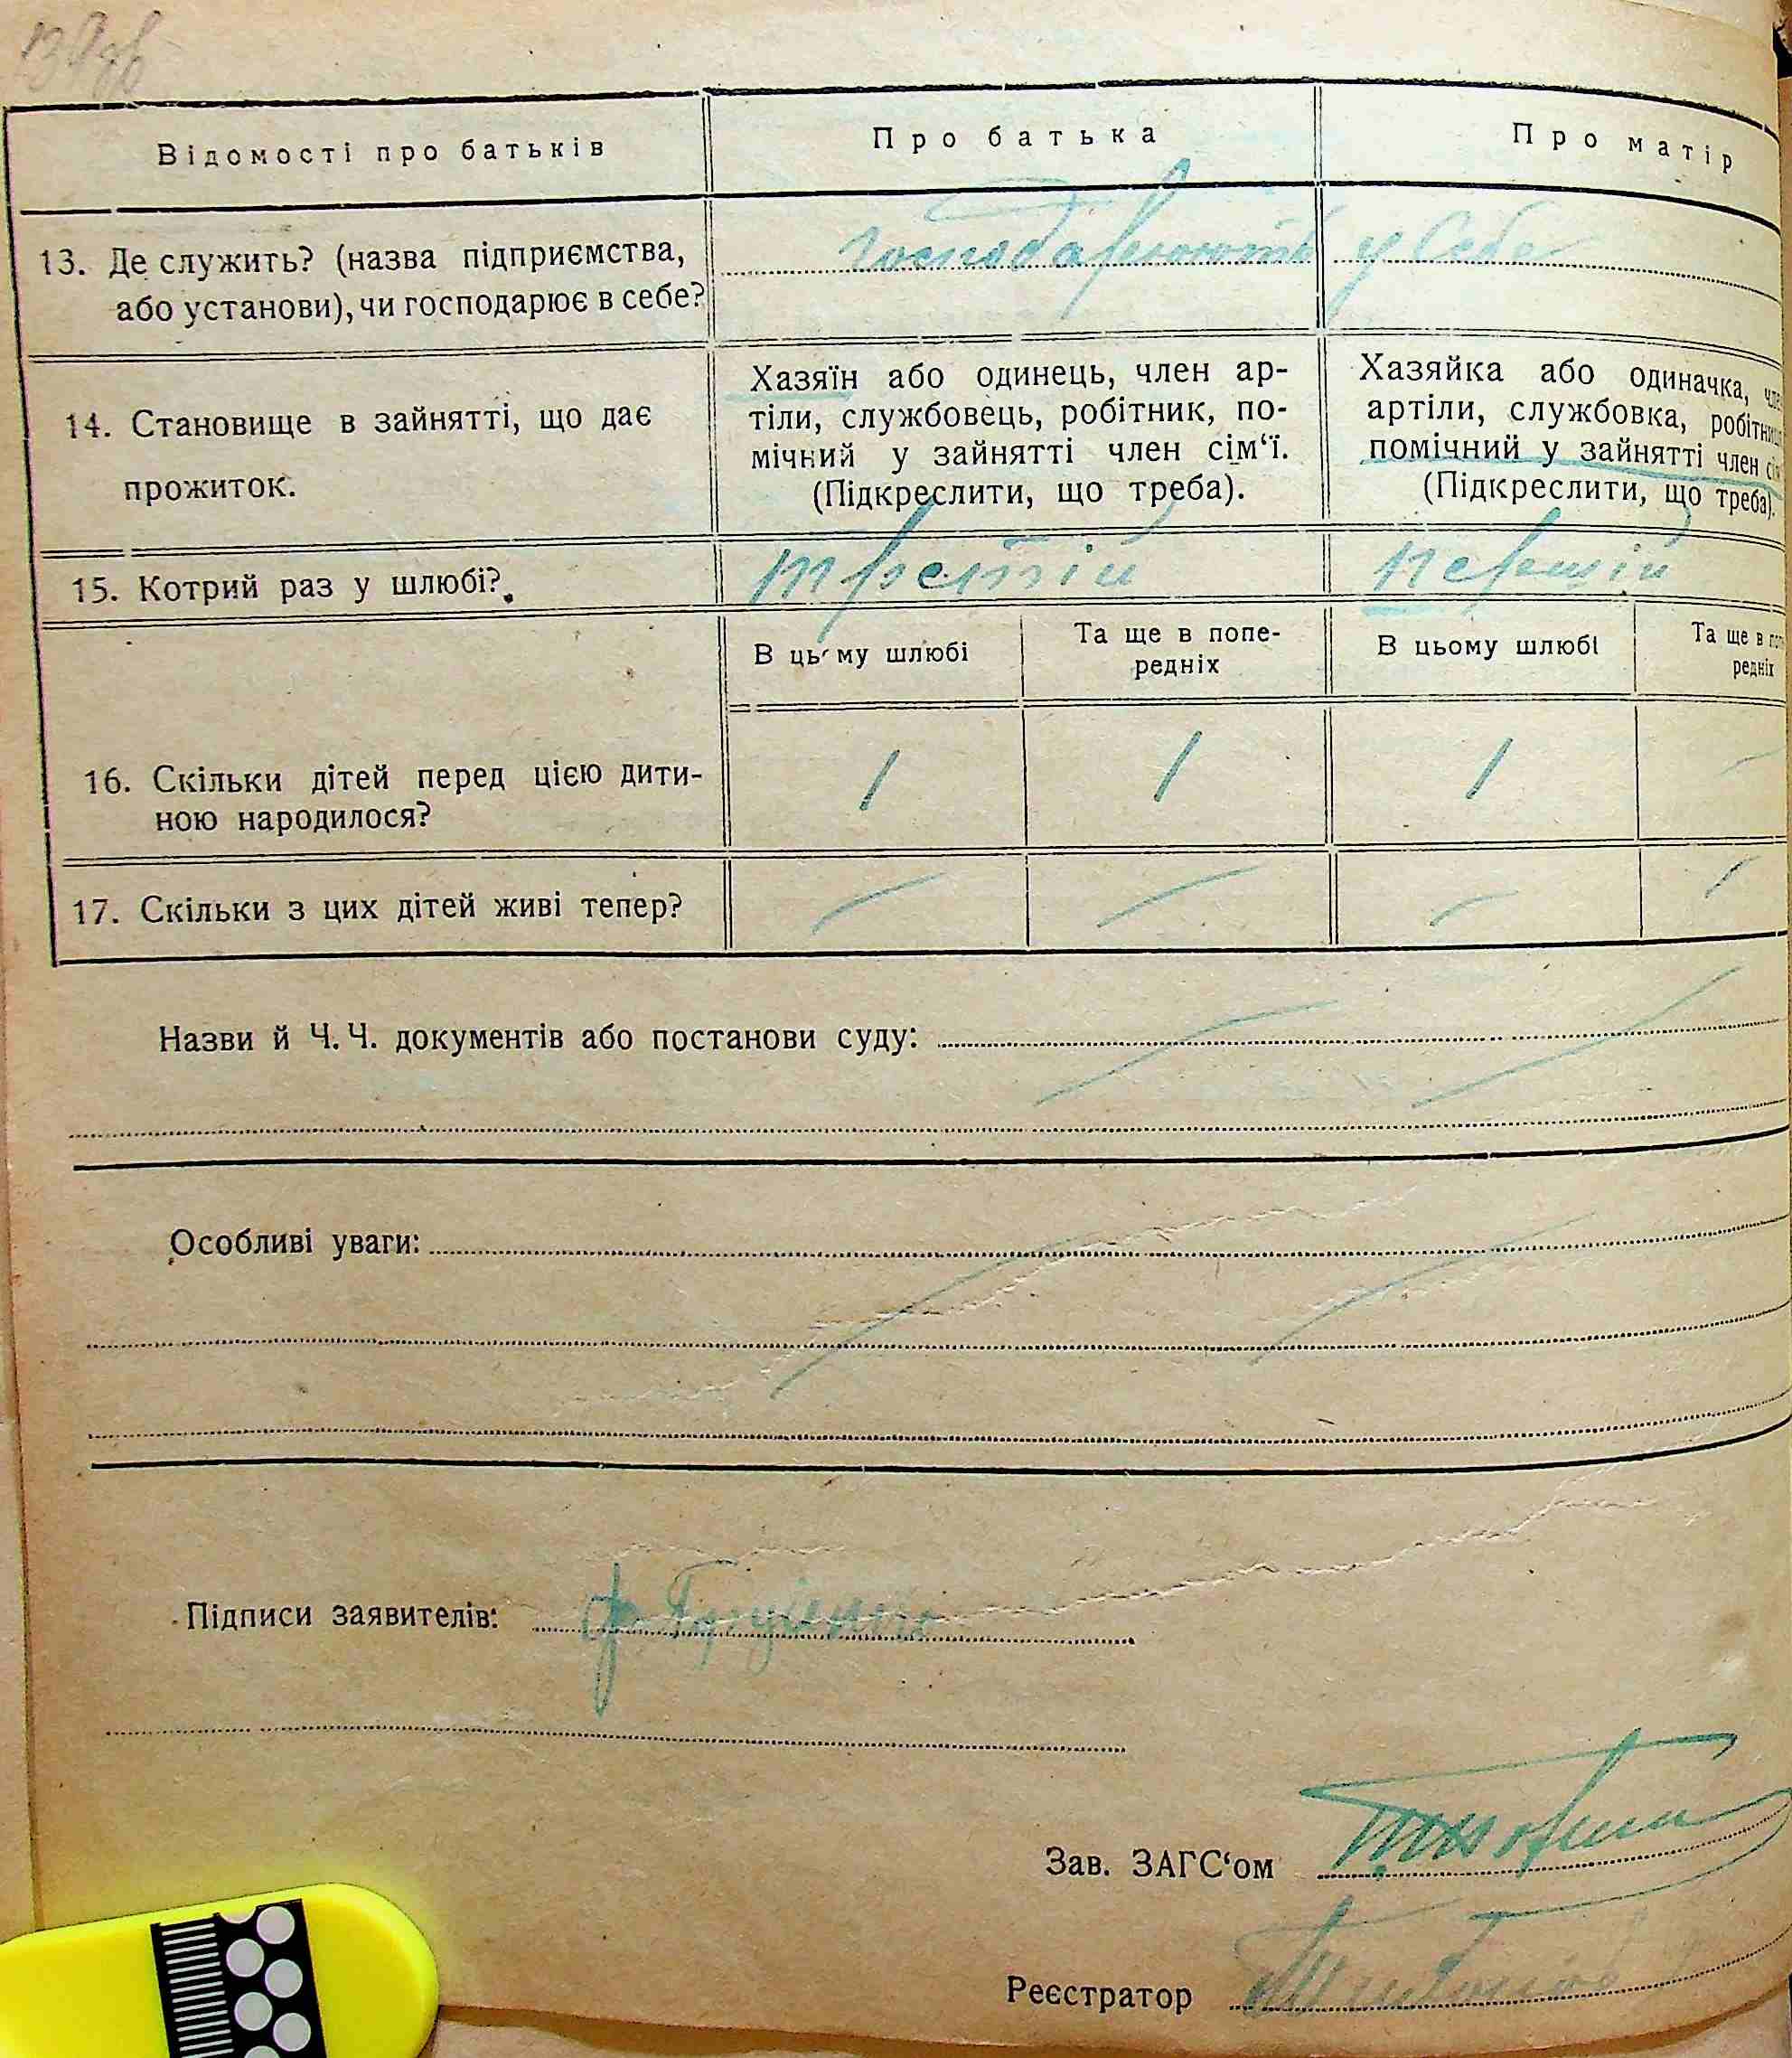 Відомості про батьків
Про батька
Про матір
13. Де служить? (назва підприємства,
або установи), чи господарює в себе?
господарюють у себе
14. Становище в зайнятті, що дає
прожиток.
Хазяїн або одинець, член ар-
тіли, службовець, робітник, по-
мічний у зайнятті член сім‘ї.
(Підкреслити, що треба).
Хазяйка або одиначка,
артіли, службовка,
помічний у зайнятті член
(Підкреслити, що треба).
15. Котрий раз у шлюбі?
третій
перший
В цьму шлюбі
Та ще в попе-
редніх
В цьому шлюбі
Та ще в
редніх
16. Скільки дітей перед цією дити-
ною народилося?
1
1
1
—
17. Скільки з цих дітей живі тепер?
Назви й Ч. Ч. документів або постанови суду:
Особливі уваги:
Підписи заявителів:
Зав. ЗАГС‘ом
Реєстратор